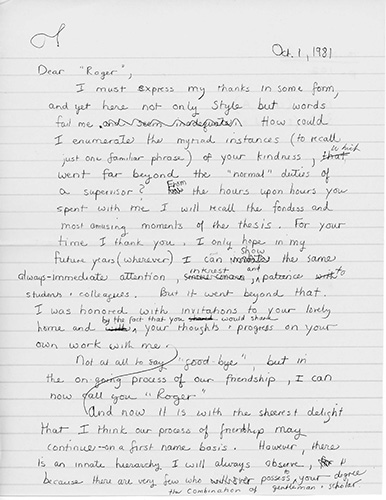 Oct. 1, 1981
Dear "Roger",
I must express my thanks in some form,
and yet here not only style but words
fail me and seem inadequate. How could
I enumerate the myriad instances (to recall
just one familiar phrase) of your kindness, that which
went far beyond the "normal" duties of
a supervisor? From the hours upon hours you
spent with me I will recall the fondest and
most amusing moments of the thesis. For your
time I thank you. I only hope in my
future years (wherever) I can show the same
always-immediate attention, interest and patience to
students & colleagues. But it went beyond that.
I was honored with invitations to your lovely
by the fact that you shared would share
home and with your thoughts & progress on your
own work with me.
Not at all to say "good-bye", but in
the on-going process of our friendship, I can
now call you "Roger"
And now it is with the sheerest delight
that I think our process of friendship may
continue on a first name basis. However, there
is an innate hierarchy I will always observe,
because there are very few who will ever possess to your degree
the combination of gentleman & scholar